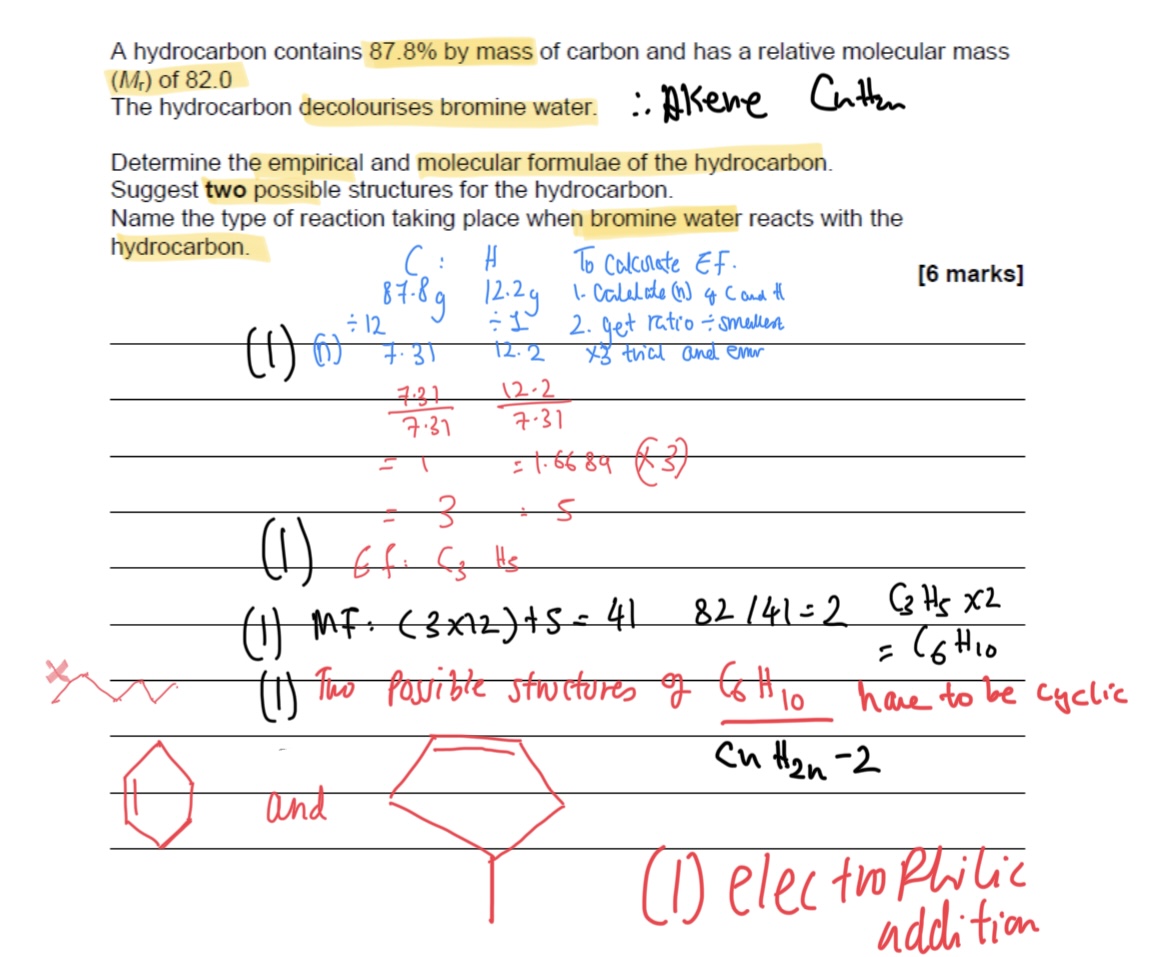 A hydrocarbon contains 87.8% by mass of carbon and has a relative molecular mass
(Mr) of 82.0
The hydrocarbon decolourises bromine water. ∴ Alkene CnH2n
Determine the empirical and molecular formulae of the hydrocarbon.
Suggest two possible structures for the hydrocarbon.
Name the type of reaction taking place when bromine water reacts with the
hydrocarbon.
[6 marks]
C : H To Calculate EF.
87.8g 12.2g 1. Calculate (n) of C and H
÷12 ÷1 2. get ratio ÷ smallest
(1) (n) 7.31 12.2 x3 trial and error
7.31 12.2
7.31 7.31
= 1 = 1.6689 (x3)
= 3 : 5
(1) Ef: C3 H5
(1) MF: (3x12)+5 = 41 82/41 = 2 C3H5 x2
= C6H10
x (1) Two Possible structures of C6H10 have to be cyclic
CnH2n-2
and
(1) electrophilic
addition